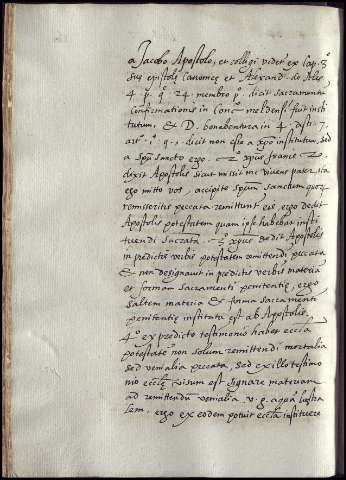 a Jacobo Apostolo, et colligi videt' ex cap. 8º
suę epistolę Canonicę et Alexand. de Ales
4. p. q. 24. membro p.º dicit sacramentũ
confirmationis in Conc.º meldensi fuit insti
tutum, & D. bonaventura in 4. dist. 7.
art.º 1. q. 1. dicit non esse a xp̃o institutum, sed
a spũ sancto ergo. 2.º xp̃us
dixit Apostolis sicut misit me vivens pater ita
ego mitto vos, accipite spũm sanctum quorũ
remiseritis peccata remittunt' eis, ergo dedit
Apostolis potestatem quam ipse habebat insti
tuendi sacr̃ata. 3.º xp̃us dedit Apostolis
in predictis verbis potestatem remittendi peccata
& non designavit in predictis verbis materiã
et formam sacramenti penitentię, ergo
saltem materia & forma sacramenti
penitentię instituta est ab Apostolis.
4.º ex predicto testimonio habet eccl̃ia
potestatẽ non solum remittendi mortalia
sed venialia peccata, sed ex illo testimo
nio eccl̃ię visum est signare materiam
ad remittendũ venialia v. g. aquã lustra
lem. ergo ex eodem potuit eccl̃a instituere